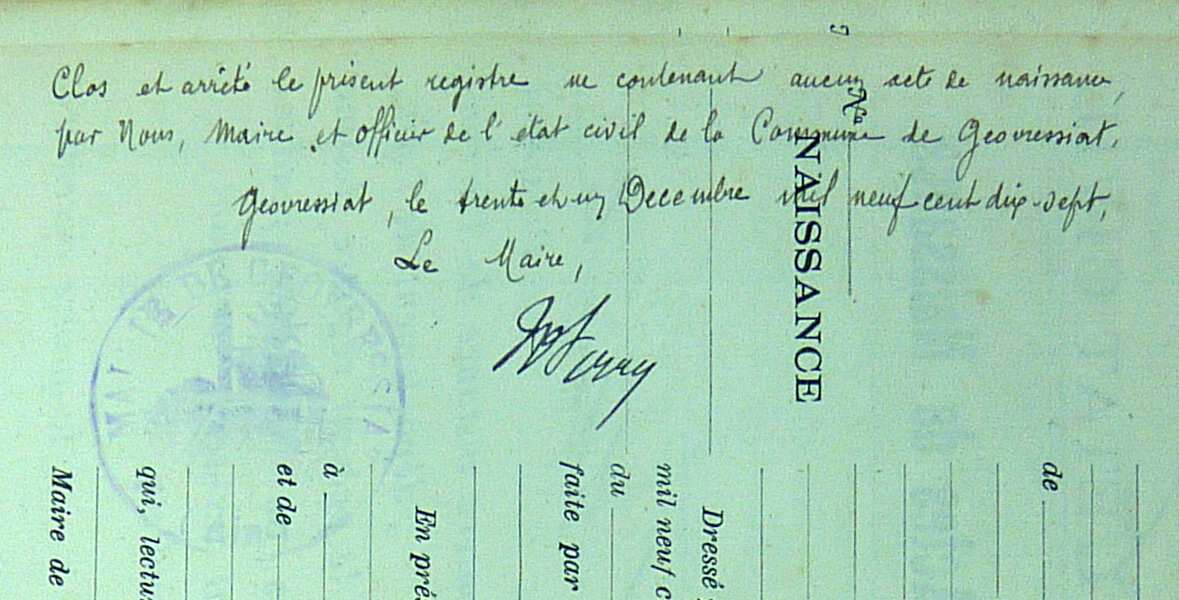 Clos et arrêté le présent registre ne contenant aucun acte de naissance,
par Nous, Maire et officier de l'état civil de la Commune de Geovressiat.
Geovressiat, le trente et un Decembre mil neuf cent dix-sept,
Le Maire,
MAIRIE DE
No
NAISSANCE
de
Dressé
mil neuf c
du
faite par
En pré
à
et de
qui, lectu
Maire de